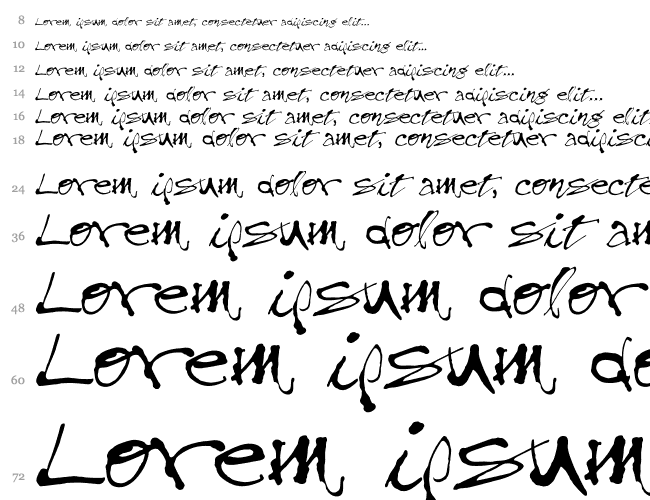 8 Lorem, ipsum, dolor sit amet, consectetuer adipiscing elit...
10 Lorem, ipsum, dolor sit amet, consectetuer adipiscing elit...
12 Lorem, ipsum, dolor sit amet, consectetuer adipiscing elit...
14 Lorem, ipsum, dolor sit amet, consectetuer adipiscing elit...
16 Lorem, ipsum, dolor sit amet, consectetuer adipiscing elit.
18 Lorem, ipsum, dolor sit amet, consectetuer adipisc
24 Lorem, ipsum, dolor sit amet, consecte
36 Lorem, ipsum, dolor sit am
48 Lorem, ipsum, dolor
60 Lorem, ipsum, do
72 Lorem, ipsum